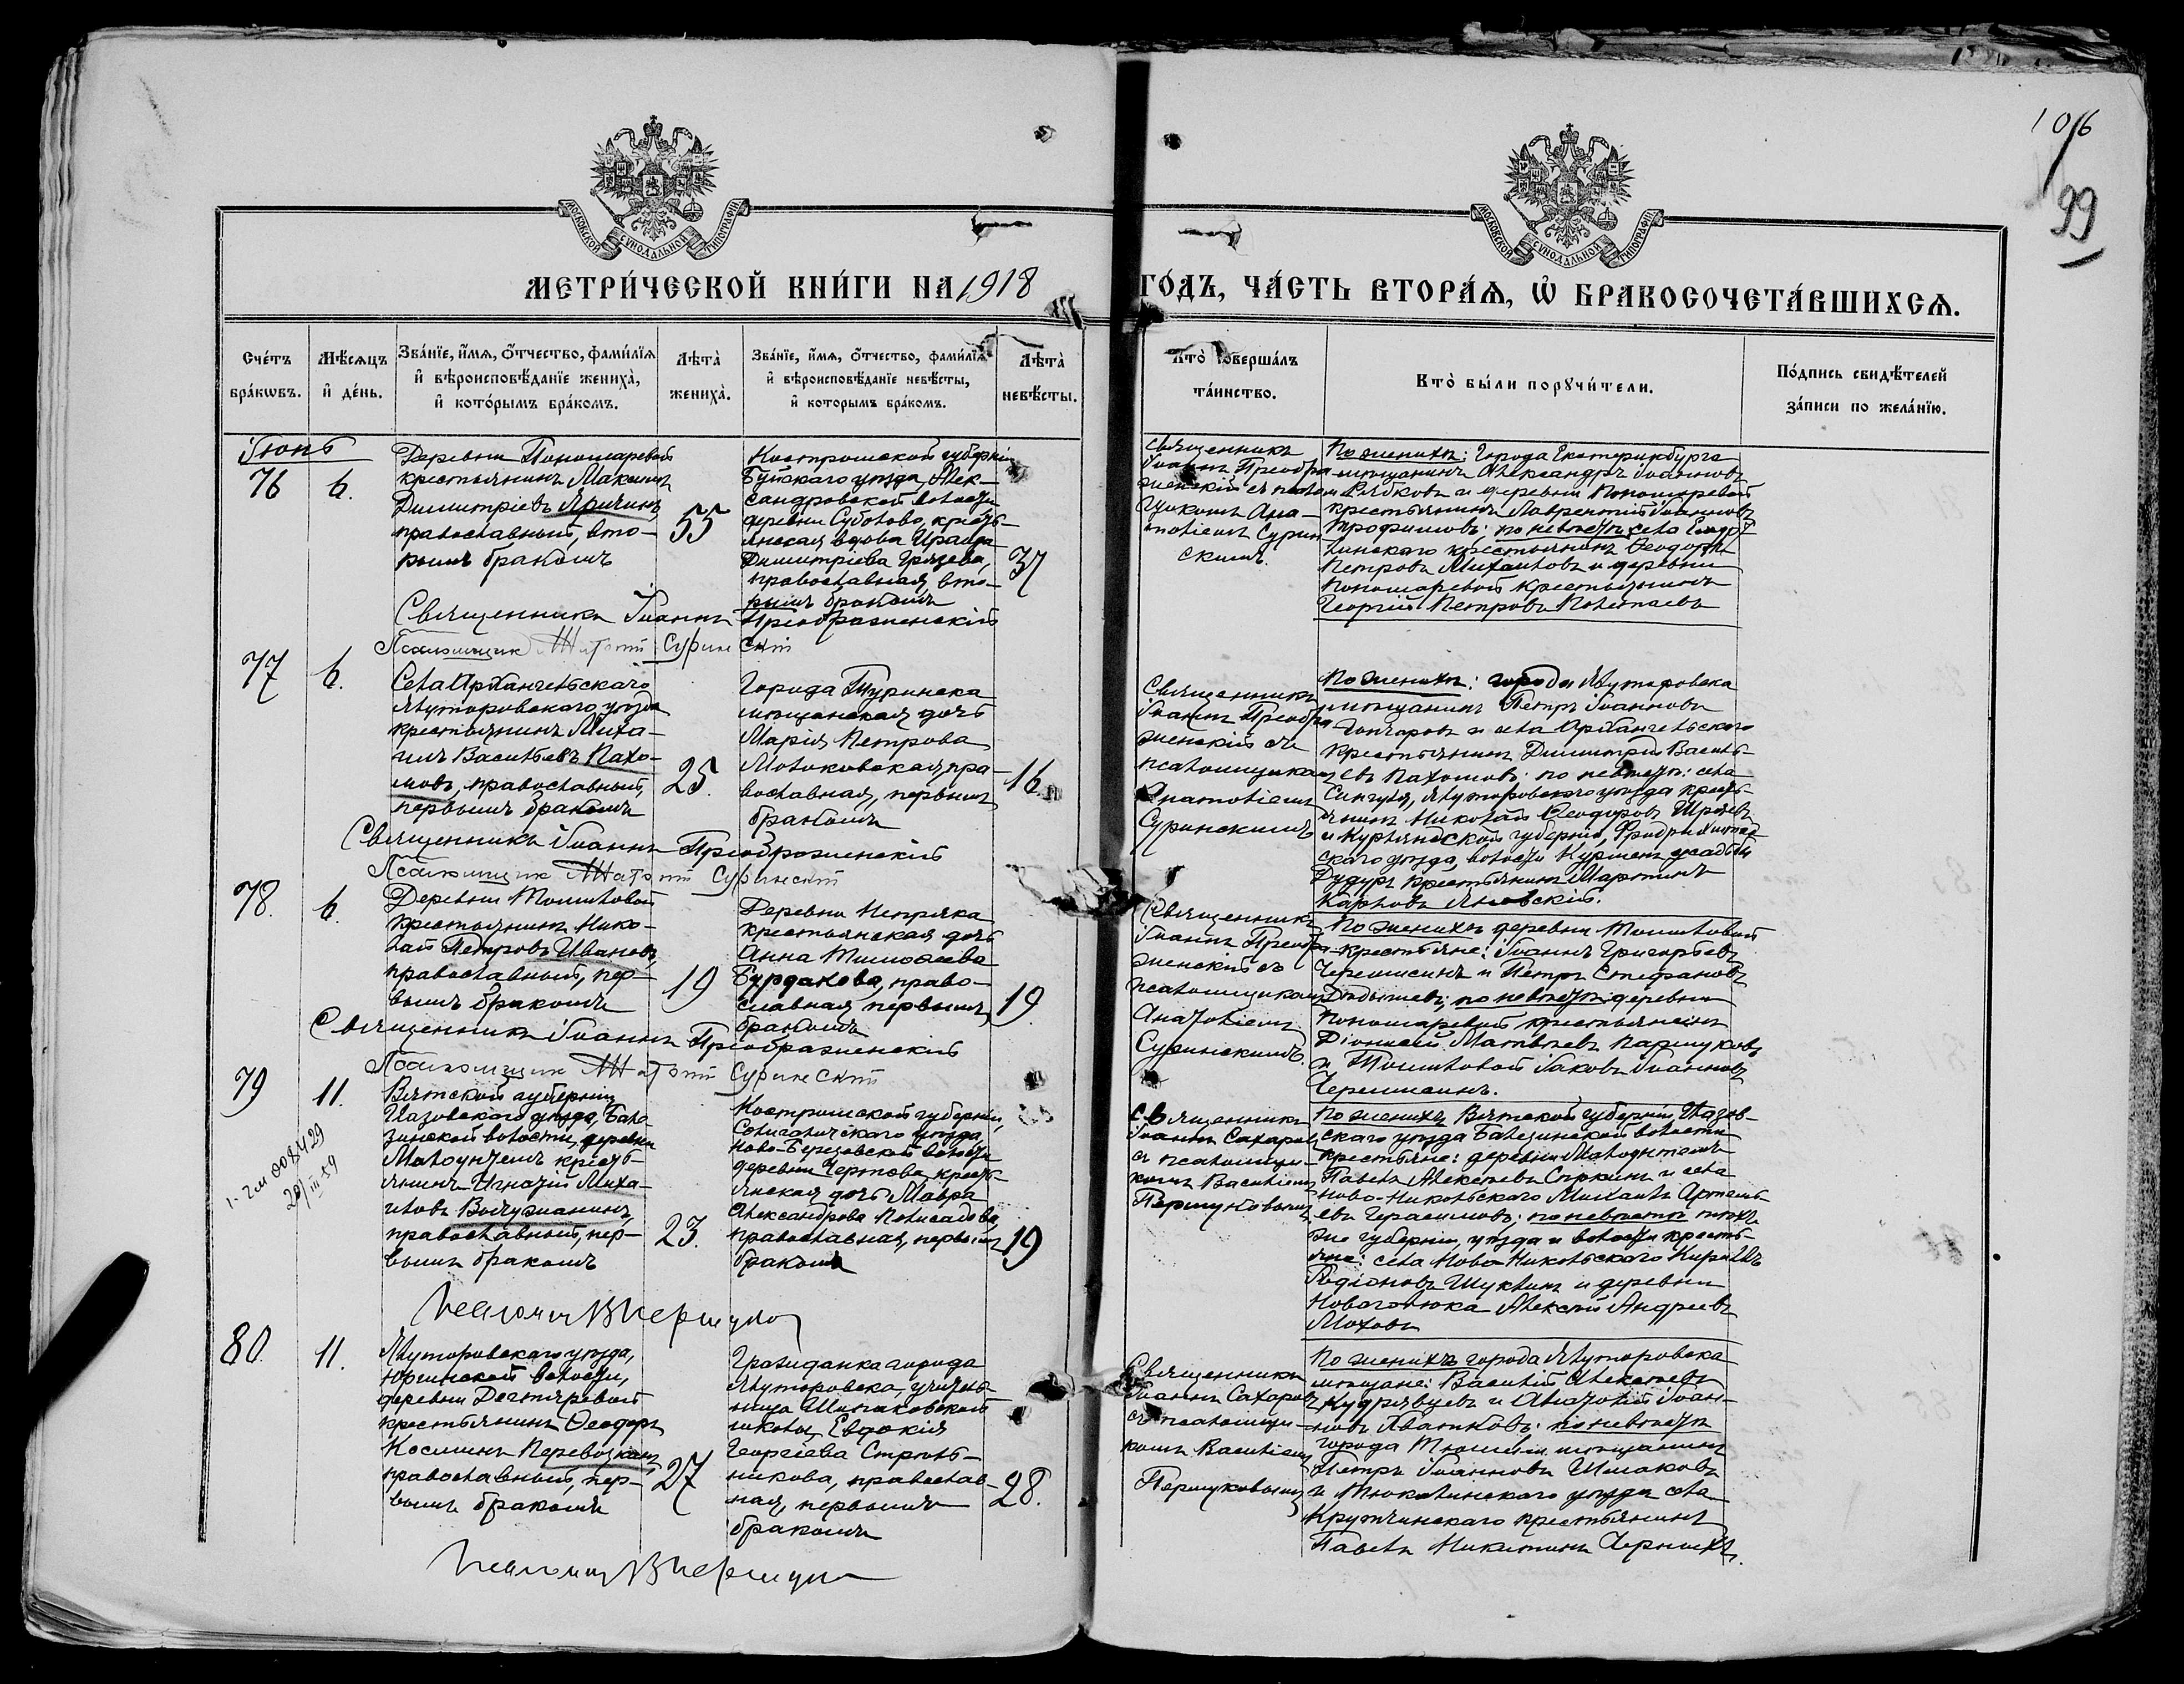 106
99
МОСКОВСКОЙ СѴНОДАЛЬНОЙ ТИПОГРАФІИ
МОСКОВСКОЙ СѴНОДАЛЬНОЙ ТИПОГРАФІИ
МЕТРИ́ЧЕСКОЙ КНИ́ГИ НА 1918 ГО́ДЪ, ЧА́СТЬ ВТОРА́Ѧ, Ѽ БРАКОСОЧЕТА́ВШИХСѦ.
Сче́тъ бра́кѡвъ.
Мѣ́сѧцъ и҆ де́нь.
Зва́нїе, и҆́мѧ, ѻ҆́тчество, фами́лїѧ и҆ вѣроисповѣ́данїе жениха̀, и҆ кото́рымъ бра́комъ.
Лѣта̀ жениха̀.
Зва́нїе, и҆́мѧ, ѻ҆́тчество, фами́лїѧ и҆ вѣроисповѣ́данїе невѣ́сты, и҆ которымъ бра́комъ.
Лѣта̀ невѣ́сты.
Кто̀ соверша́лъ та́инство.
Кто̀ бы́ли порꙋчи́тели.
По́дпись свидѣ́телей за́писи по жела́нїю.
Іюнь
76
6.
Деревни Пономаревой
крестьянинъ Максимъ
Димитріевъ Яричинъ,
православный, вто-
рымъ бракомъ
55
Костромской губерніи
Буйскаго уѣзда, Алек-
сандровской волости
деревни Суботово, кресть-
янская вдова Ираида
Димитріева Грязева,
православная, вто-
рымъ бракомъ
37
Священникъ
Іоаннъ Преобра-
женскій съ псалом
щикомъ Ана-
толіемъ Сурин
скимъ.
По женихѣ: города Екатеринбурга
мѣщанинъ Александръ Іоанновъ
Рябковъ и деревни Пономаревой
крестьянинъ Лаврентій Іоанновъ
Трофимовъ; по невѣстѣ: села
крестьянинъ Ѳеодоръ
Петровъ Михайловъ и деревни
Пономаревой крестьянинъ
Георгій Петровъ Полетаевъ
Священникъ Іоаннъ Преображенскій
Псаломщик Анатолій Суринскій
77
6.
Села Архангельскаго
Ялуторовскаго уѣзда
крестьянинъ Миха-
илъ Васильевъ Пахо-
мовъ, православный,
первымъ бракомъ
25.
Города Туринска
мѣщанская дочь
Марія Петрова
Молоковская, пра-
вославная, первымъ
бракомъ
16.
Священникъ
Іоаннъ Преобра
женскій съ
псаломщикомъ
Анатоліемъ
Суринскимъ
По женихѣ: города Ялуторовска
мѣщанинъ Петръ Іоанновъ
Гончаровъ и села Архангельскаго
крестьянинъ Димитрій Василь-
евъ Пахомовъ; по невѣстѣ: села
Сингуля, Ялуторовскаго уѣзда кресть-
янинъ Николай Ѳеодоровъ
и Курляндской губерніи, Фридрихштад-
скаго уѣзда, волости Курменъ усадьбы
Дудуръ крестьянинъ Мартинъ
Карловъ Яновскій.
Священникъ Іоаннъ Преображенскій
Псаломщик Анатолій Суринскій
78.
6.
Деревни Томиловой
крестьянинъ Нико-
лай Петровъ Ивановъ,
православный, пер-
вымъ бракомъ
19
Деревни Непряка
крестьянская дочь
Анна Тимоѳеева
Бурдакова, право-
славная первымъ
бракомъ
19.
Священникъ
Іоаннъ Преобра
женскій съ
псаломщикомъ
Анатоліемъ
Суринскимъ.
По женихѣ деревни Томиловой
крестьяне: Іоаннъ Григорьевъ
Черемисинъ и Петръ Стефановъ
по невѣстѣ: деревни
Пономаревой крестьянинъ
Діонисій Матвѣевъ Паршуковъ
и Томиловой Іаковъ Іоанновъ
Черемисинъ.
Священникъ Іоаннъ Преображенскій
Псаломщик Анатолій Суринскій
79
11.
Вятской губерніи
Глазовскаго уѣзда, Бале-
зинской волости, деревни
крестья-
янинъ Игнатій Миха-
иловъ Волужанинъ,
православный, пер-
вымъ бракомъ
23.
Костромской губерніи,
Солигаличскаго уѣзда
Ново-Березовской волости
деревни Чертова, кресть-
янская дочь Мавра
Александрова Полисадова,
православная, первымъ
бракомъ
19
Священникъ
Іоаннъ Сахаровъ
съ псаломщи-
комъ Василіемъ
Першуковымъ
По женихѣ Вятской губерніи, Глазов-
скаго уѣзда Балезинской волости
крестьяне: деревни
Павелъ Алексѣевъ Спиркинъ и села
Ново-Никольскаго Михаилъ Артемь-
евъ Герасимовъ; по невѣстѣ тѣхъ
же губерніи, уѣзда и волости кресть-
яне: села Ново-Никольскаго Кириллъ
Родіоновъ Шуклинъ и деревни
Алексѣй Андреевъ
Моховъ
80.
11.
Ялуторовскаго уѣзда,
Юргинской волости,
деревни Дегтяревой
крестьянинъ Ѳеодоръ
Косминъ Перевозкинъ,
православный, пер-
вымъ бракомъ
27
Гражданка города
Ялуторовска, учитель-
ница Шипаковской
школы, Евдокія
Георгіева Стрѣль-
никова, православ-
ная, первымъ
бракомъ
28.
Священникъ
Іоаннъ Сахаровъ
съ псаломщи-
комъ Василіемъ
Першуковымъ
По женихѣ города Ялуторовска
мѣщане: Василій Алексѣевъ
Кудрявцевъ и Анатолій Іоан-
новъ; по невѣстѣ
города Тюмени мѣщанинъ
Петръ Іоанновъ Шмаковъ
и Тюкалинскаго уѣзда села
Крутинскаго крестьянинъ
Павелъ Никитинъ Черныхъ.